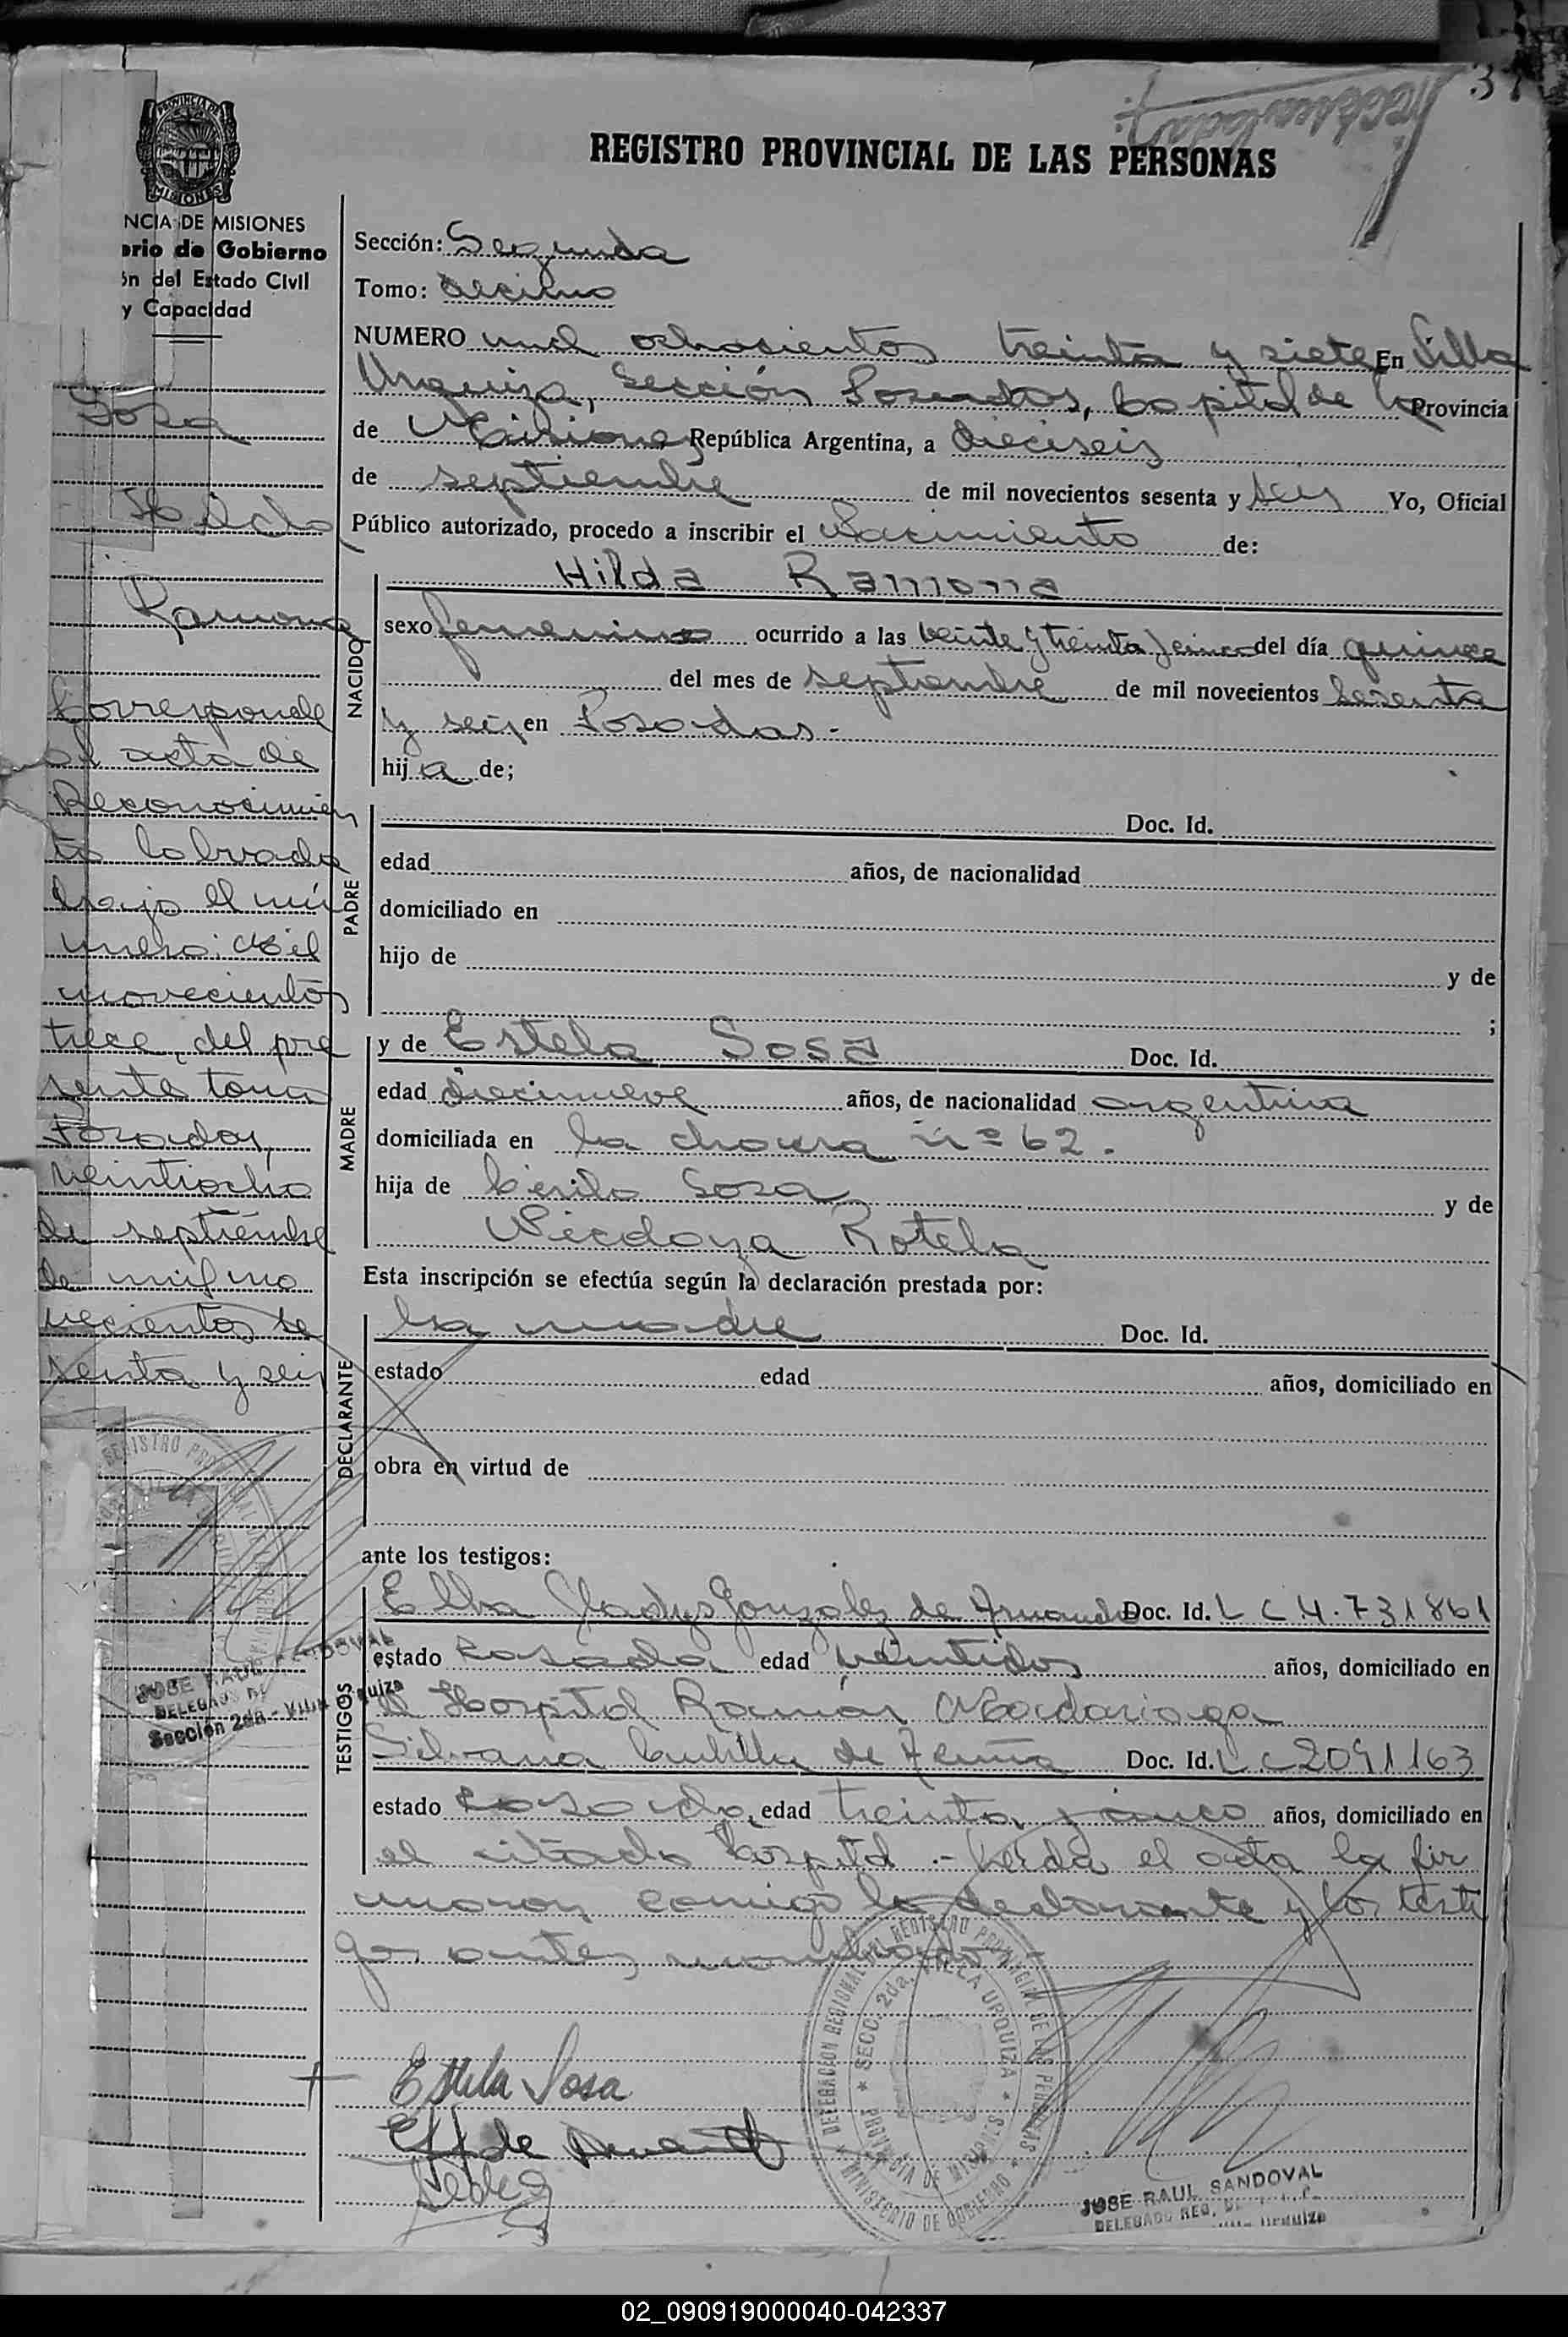 37
REGISTRO PROVINCIAL DE LAS PERSONAS
PROVINCIA DE
MISIONES
NCIA DE MISIONES
erio de Gobierno
ón del Estado Civil
y Capacidad
Sosa
Hilda
Ramona
Corresponde
al acta de
Reconocimien
to labrada
bajo el nú
mero: Mil
novecientos
trece, del pre
sente tomo
Posadas,
veintiocho
de septiembre
de mil no
vecientos se
senta y seis
JOSE RAUL SANDOVAL
DELEGADO RE
Sección 2da - Villa Urquiza
Sección: Segunda
Tomo: decimo
NUMERO mil ochocientos treinta y siete En Villa
Urquiza, Sección Posadas, Capital de la Provincia
de Misiones República Argentina, a dieciseis
de septiembre de mil novecientos sesenta y seis Yo, Oficial
Público autorizado, procedo a inscribir el Nacimiento de:
NACIDO
Hilda Ramona
sexo femenino ocurrido a las veinte y treinta y cinco del día quince
del mes de septiembre de mil novecientos sesenta
y seis en Posadas.-
hij a de;
PADRE
Doc. Id.
edad años, de nacionalidad
domiciliado en
hijo de y de
;
MADRE
y de Estela Sosa Doc. Id.
edad diecinueve años, de nacionalidad argentina
domiciliada en la chacra nº 62.
hija de Cirilo Sosa y de
Rotela
Esta inscripción se efectúa según la declaración prestada por:
DECLARANTE
La madre Doc. Id.
estado edad años, domiciliado en
obra en virtud de
ante los testigos:
TESTIGOS
Elba Gladys Gonzalez de Doc. Id. L C 4.731861
estado casada edad veintidos años, domiciliado en
el Hospital Ramón Madariaga
Silvana de Doc. Id. L C 2091163
estado casada, edad treinta y cinco años, domiciliado en
el citado hospital.- Leída el acta la fir
maron conmigo la declarante y los testi
gos antes nombrados.-
Estela Sosa
DELEGACION REGIONAL DEL REGISTRO PROVINCIAL DE LAS PERSONAS
SECC. 2da. VILLA URQUIZA
PROVINCIA DE MISIONES
MINISTERIO DE GOBIERNO
JOSE RAUL SANDOVAL
DELEGADO REG.
02_090919000040-042337